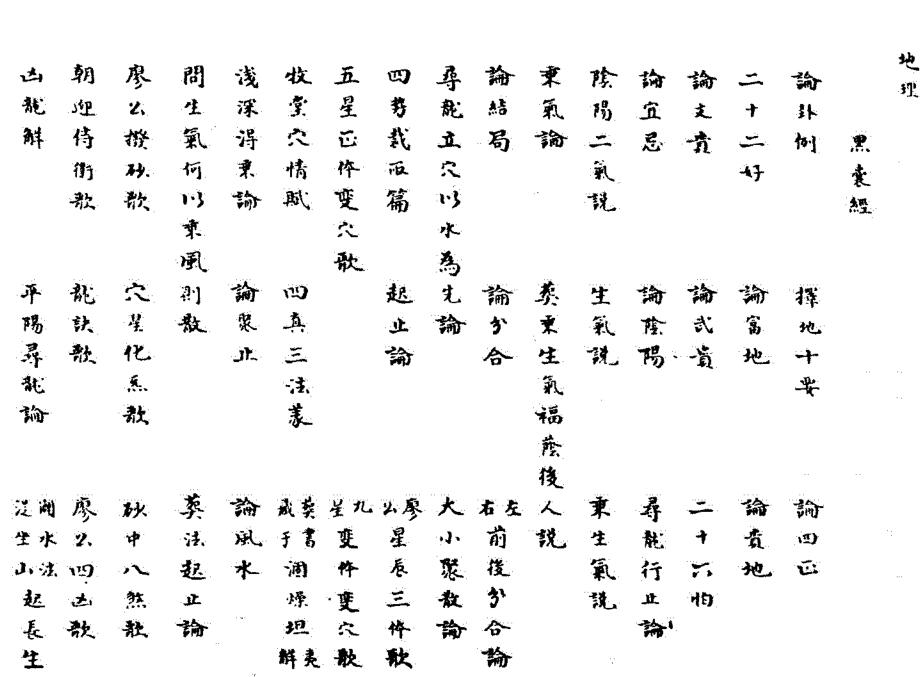 地理
黑囊經
論卦例 擇地十要 論四正
二十二好 論富地 論貴地
論文貴 論武貴 二十六怕
論宜忌 論陰陽 尋龍行止論
陰陽二氣説 生氣説 乘生氣説
乘氣論 葬乘生氣福蔭後人説
論結局 論分合 左右前後分合論
尋龍立穴以水為先論 大小聚散論
四勢裁而篇 起止論 廖公星辰三体歌
五星正体變穴歌 九星變体變穴歌
牧堂穴情賦 四真三法 葬書 燥坦夷 解
淺深得乘論 論聚止 論風水
問生氣何以乘風則散 葬法起止論
廖公撥砂歌 穴星化炁歌 砂中八煞歌
朝迎侍衛歌 龍訣歌 廖公四凶歌
凶龍解 平陽尋龍論 水法 坐山起長生